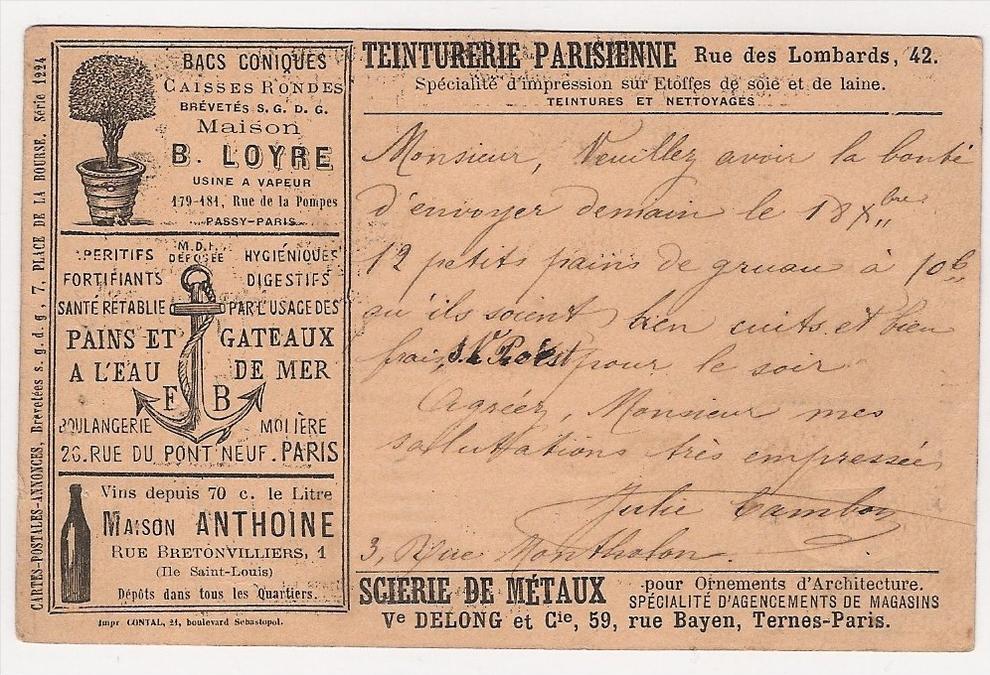 CARTES-POSTALES-ANNONCES. Brevetées s. g. d. g., 7, PLACE DE LA BOURSE. Série 1224
BACS CONIQUES
CAISSES RONDES
BRÉVETÉS S. G. D. G.
Maison
B. LOYRE
USINE A VAPEUR
179-181, Rue de la Pompes
PASSY-PARIS
M.D.F.
DÉPOSÉE
APERITIFS HYGIÉNIQUES
FORTIFIANTS DIGESTIFS
SANTÉ RÉTABLIE PAR L'USAGE DES
PAINS ET GATEAUX
A L'EAU DE MER
F B
BOULANGERIE MOLIÈRE
26. RUE DU PONT NEUF. PARIS
Vins depuis 70 c. le Litre
MAISON ANTHOINE
RUE BRETONVILLIERS, 1
(Ile Saint-Louis)
Dépôts dans tous les Quartiers.
Impr CONTAL, 21, boulevard Sébastopol.
TEINTURERIE PARISIENNE Rue des Lombards, 42.
Spécialité d'impression sur Etoffes de soie et de laine.
TEINTURES ET NETTOYAGES
Monsieur, Veuillez avoir la bonté
d'envoyer demain le 18 Xbre
12 petits pains de gruau à 10c
qu'ils soient bien cuits et bien
frais, pour le soir
Agréez, Monsieur mes
salluttations très empressées
Julie Cambon
3, Rue Montholon.
SCIERIE DE MÉTAUX pour Ornements d'Architecture.
SPÉCIALITÉ D'AGENCEMENTS DE MAGASINS
Ve DELONG et Cie, 59, rue Bayen, Ternes-Paris.